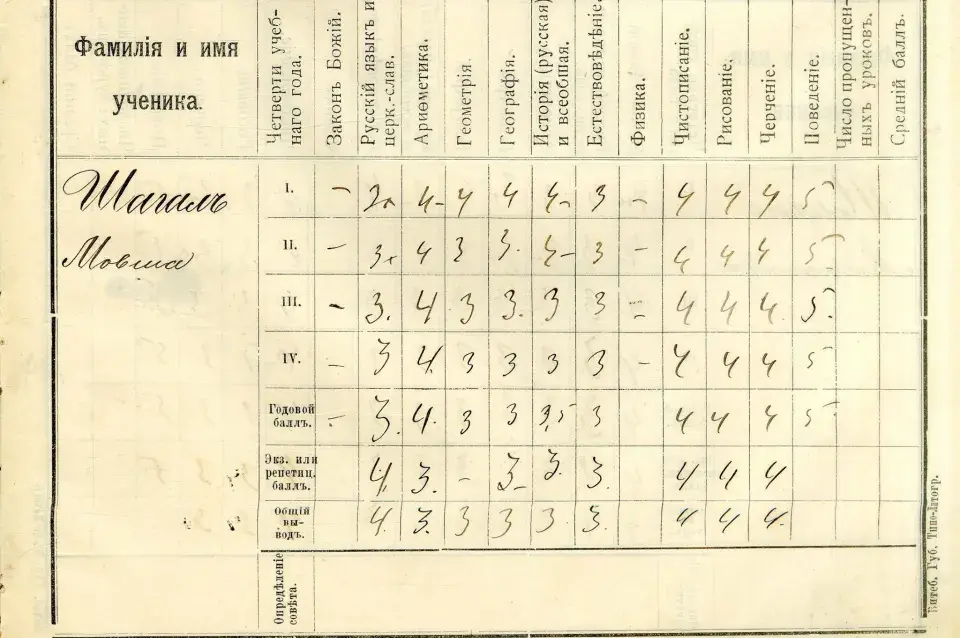 Фамилія и имя
ученика.
Четверти учеб-
наго года.
Законъ Божій.
Русскій языкъ и
церк.-слав.
Ариѳметика.
Геометрія.
Географія.
Исторія (русская)
и всеобшая.
Естествовѣдѣніе.
Физика.
Чистописаніе.
Рисованіе.
Черченіе.
Поведеніе.
Число пропущен-
ныхъ уроковъ.
Средній баллъ.
Шагалъ
Мовша
I. – 3+ 4- 4 4 4- 3 – 4 4 4 5
II. – 3+ 4 3 3. 4- 3 – 4 4 4 5
III. – 3. 4 3 3. 3 3 – 4 4 4 5.
IV. – 3 4. 3 3 3 3 – 4 4 4 5
Годовой
баллъ. – 3. 4. 3 3 3,5 3 4 4 4 5
Экз. или
репетиц.
баллъ. 4. 3. – 3 3. 3. 4 4 4
Общій
вы-
водъ. 4. 3. 3 3 3. 3. 4 4 4.
Опредѣленіе
совѣта.
Витеб. Губ. Типо-Литогр.